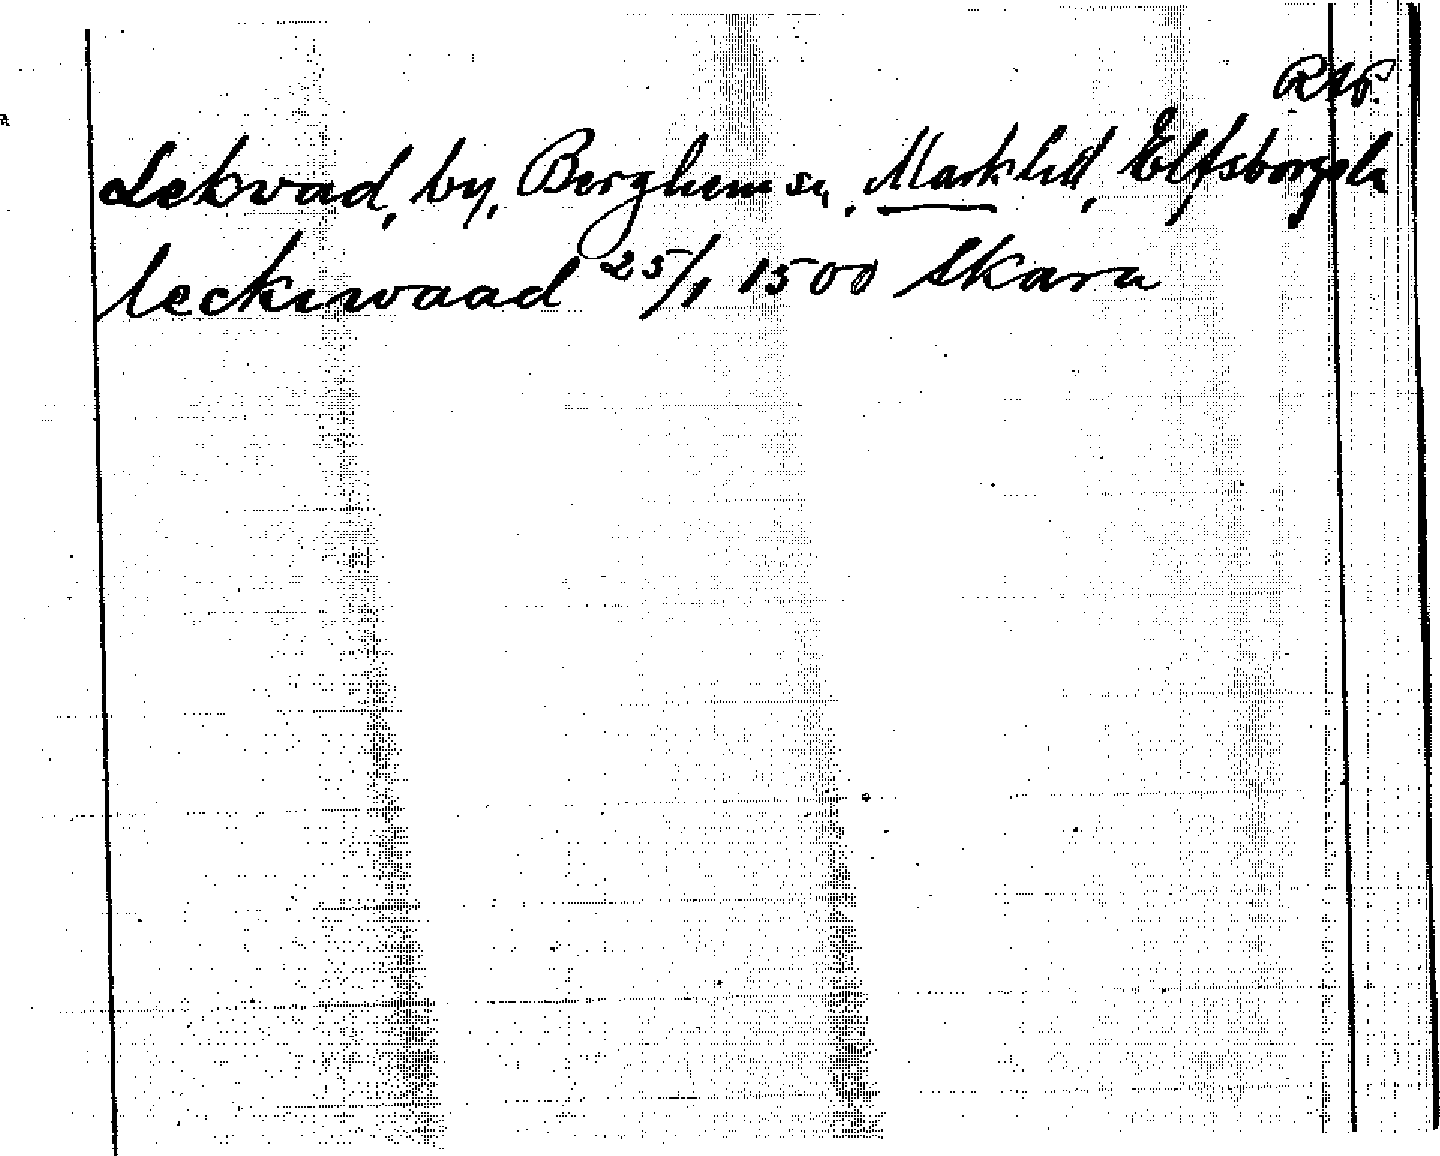 RAp.
Lekvad, by, Berghem sn, Marks hd, Elfsborgs ln
leckwaad 25/1 1500 Skara